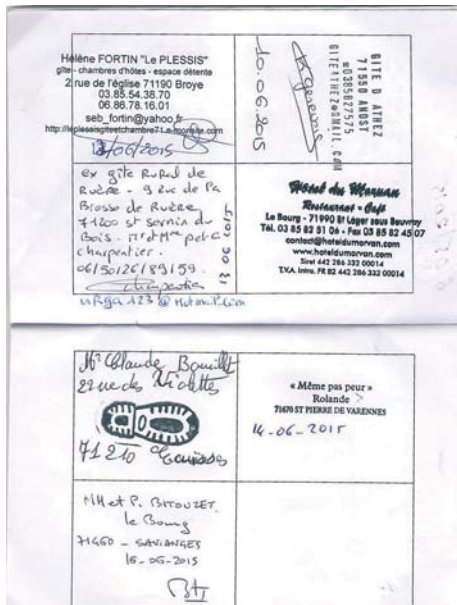 Hélène FORTIN "Le PLESSIS"
gîte - chambres d'hôtes - espace détente
2 rue de l'église 71190 Broye
03.85.54.38.70
06.86.78.16.01
seb_fortin@yahoo.fr
http://leplessisgiteetchambre71.e-monsite.com
12/06/2015
GITE D ATHEZ
71550 ANOST
☎0385827575
GITEATHEZ@GMAIL.COM
10.06.2015
ex gîte RuRal de
Ruère - 9 Rue de la
Brosse de Ruère
71200 st sernin du
Bois - Mr et Mme
charpentier.
06/50/26/89/59.
charpentier
13 06 2015
@Hotmail.com
Hôtel du Morvan
Restaurant - Café
Le Bourg - 71990 St Léger sous Beuvray
Tél. 03 85 82 51 06 - Fax 03 85 82 45 07
contact@hoteldumorvan.com
www.hoteldumorvan.com
Siret 442 286 332 00014
T.V.A. Intra. FR 82 442 286 332 00014
Mr Claude Bouillet
22 rue des Violettes
71210
« Même pas peur »
Rolande
71670 ST PIERRE DE VARENNES
14-06-2015
MH et P. BITOUZET.
le Bourg
71460 - SAVIANGES
16-06-2015